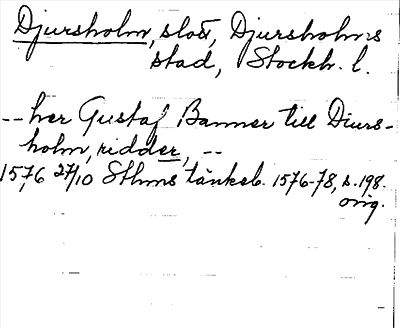 Djursholm, slott, Djursholms
stad, Stockh. l.
-- her Gustaf Banner till Diurs-
holm, ridder, --
1576 27/10 Sthms tänkeb. 1576-78, s. 198.
orig.